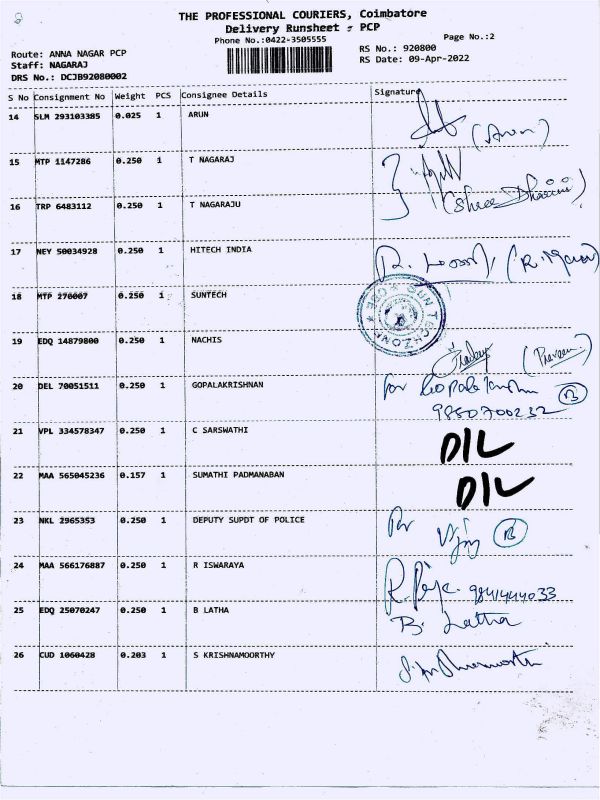 THE PROFESSIONAL COURIERS, Coimbatore
Delivery Runsheet - PCP
Phone No.:0422-3505555
Page No.:2
Route: ANNA NAGAR PCP
RS No.: 920800
Staff: NAGARAJ
RS Date: 09-Apr-2022
DRS No.: DCJB92080002
S No Consignment No Weight PCS Consignee Details Signature
14 SLM 293103385 0.025 1 ARUN
(Arun)
15 MTP 1147286 0.250 1 T NAGARAJ
16 TRP 6483112 0.250 1 T NAGARAJU
(Shree Dharini)
17 NEY 50034928 0.250 1 HITECH INDIA
18 MTP 270007 0.250 1 SUNTECH
SUN TECHZONE
19 EDQ 14879800 0.250 1 NACHIS
(Praveen)
20 DEL 70051511 0.250 1 GOPALAKRISHNAN
for Gopalakrishnan
9850700232
21 VPL 334578347 0.250 1 C SARSWATHI
D/L
22 MAA 565045236 0.157 1 SUMATHI PADMANABAN
D/L
23 NKL 2965353 0.250 1 DEPUTY SUPDT OF POLICE
for
24 MAA 566176887 0.250 1 R ISWARAYA
9841444033
25 EDQ 25070247 0.250 1 B LATHA
B. Latha
26 CUD 1060428 0.203 1 S KRISHNAMOORTHY